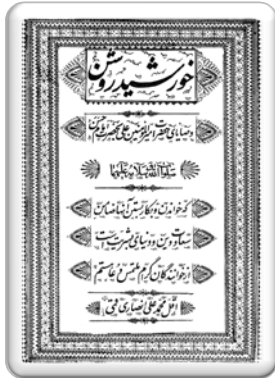 خورشید روشن
وصایای حضرت امیرالمؤمنین علی بحضرت امام حسن
سلام الله علیهما
که خواندن و بکار بستن آنها ضامن
سعادت دین و دنیای بشریت است
از خوانندگان گرام ملتمس دعا هستم
اقل محمد علی انصاری قمی